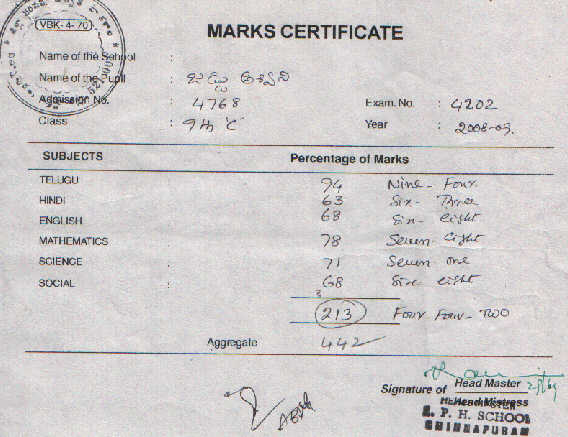 VBK-4-70
MARKS CERTIFICATE
Name of the School :
Name of the Pupil :
Admission No. : 4768 Exam. No. : 4202
Class : 9th 'C' Year : 2008-09.
SUBJECTS Percentage of Marks
TELUGU : 94 Nine - Four
HINDI 63 Six - Three
ENGLISH 68 Six - eight
MATHEMATICS : 78 Seven - Eight
SCIENCE : 71 Seven one
SOCIAL : 68 Six eight
213 Four Four - TWO
Aggregate 442
Signature of Head Master
Head Mistress
HEADMASTER
P. H. SCHOOL
CHINNAPURAM